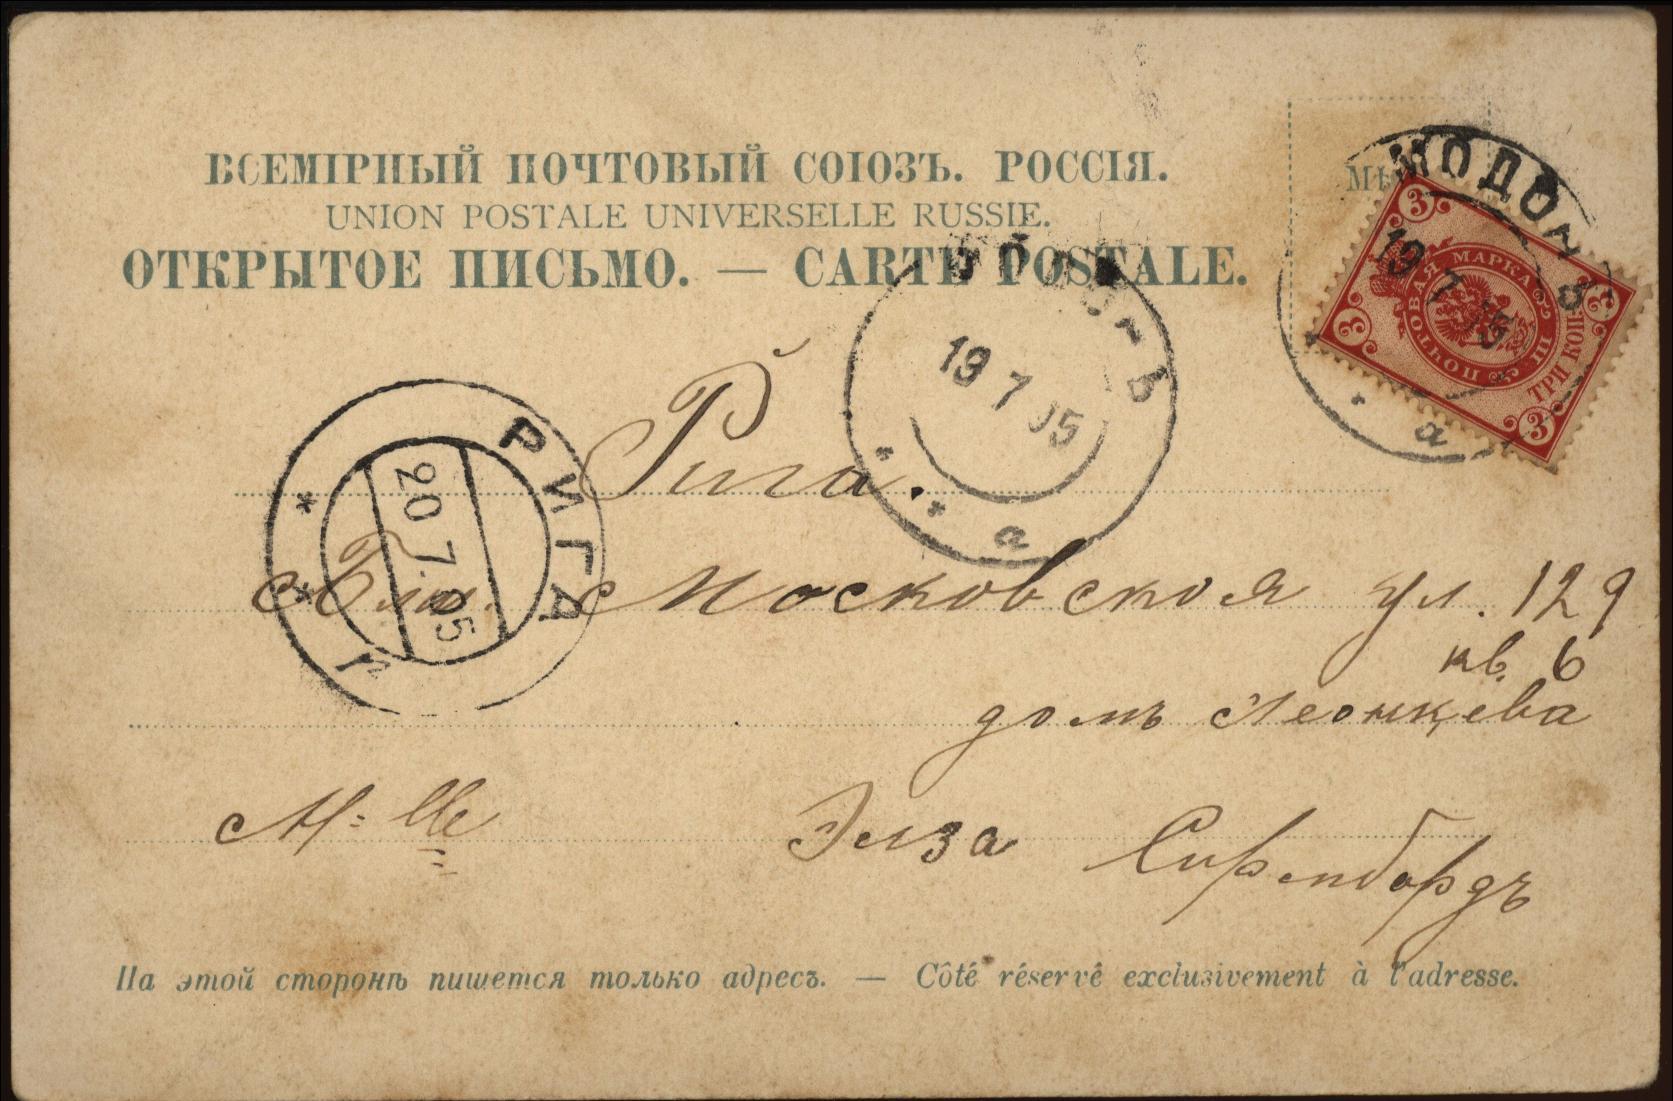 ВСЕМІРНЫЙ ПОЧТОВЫЙ СОЮЗЪ. РОССІЯ.
UNION POSTALE UNIVERSELLE RUSSIE.
ОТКРЫТОЕ ПИСЬМО. — CARTE POSTALE.
МОДОНЪ
19 7 05
а
ПОЧТОВАЯ МАРКА
ТРИ КОП
3 3 3 3
19 7 05
а
РИГА
20.7.05
Рига.
Московская ул. 129
кв. 6
домъ
M-lle
Элза
На этой сторонѣ пишется только адресъ. — Côté réservé exclusivement à l'adresse.